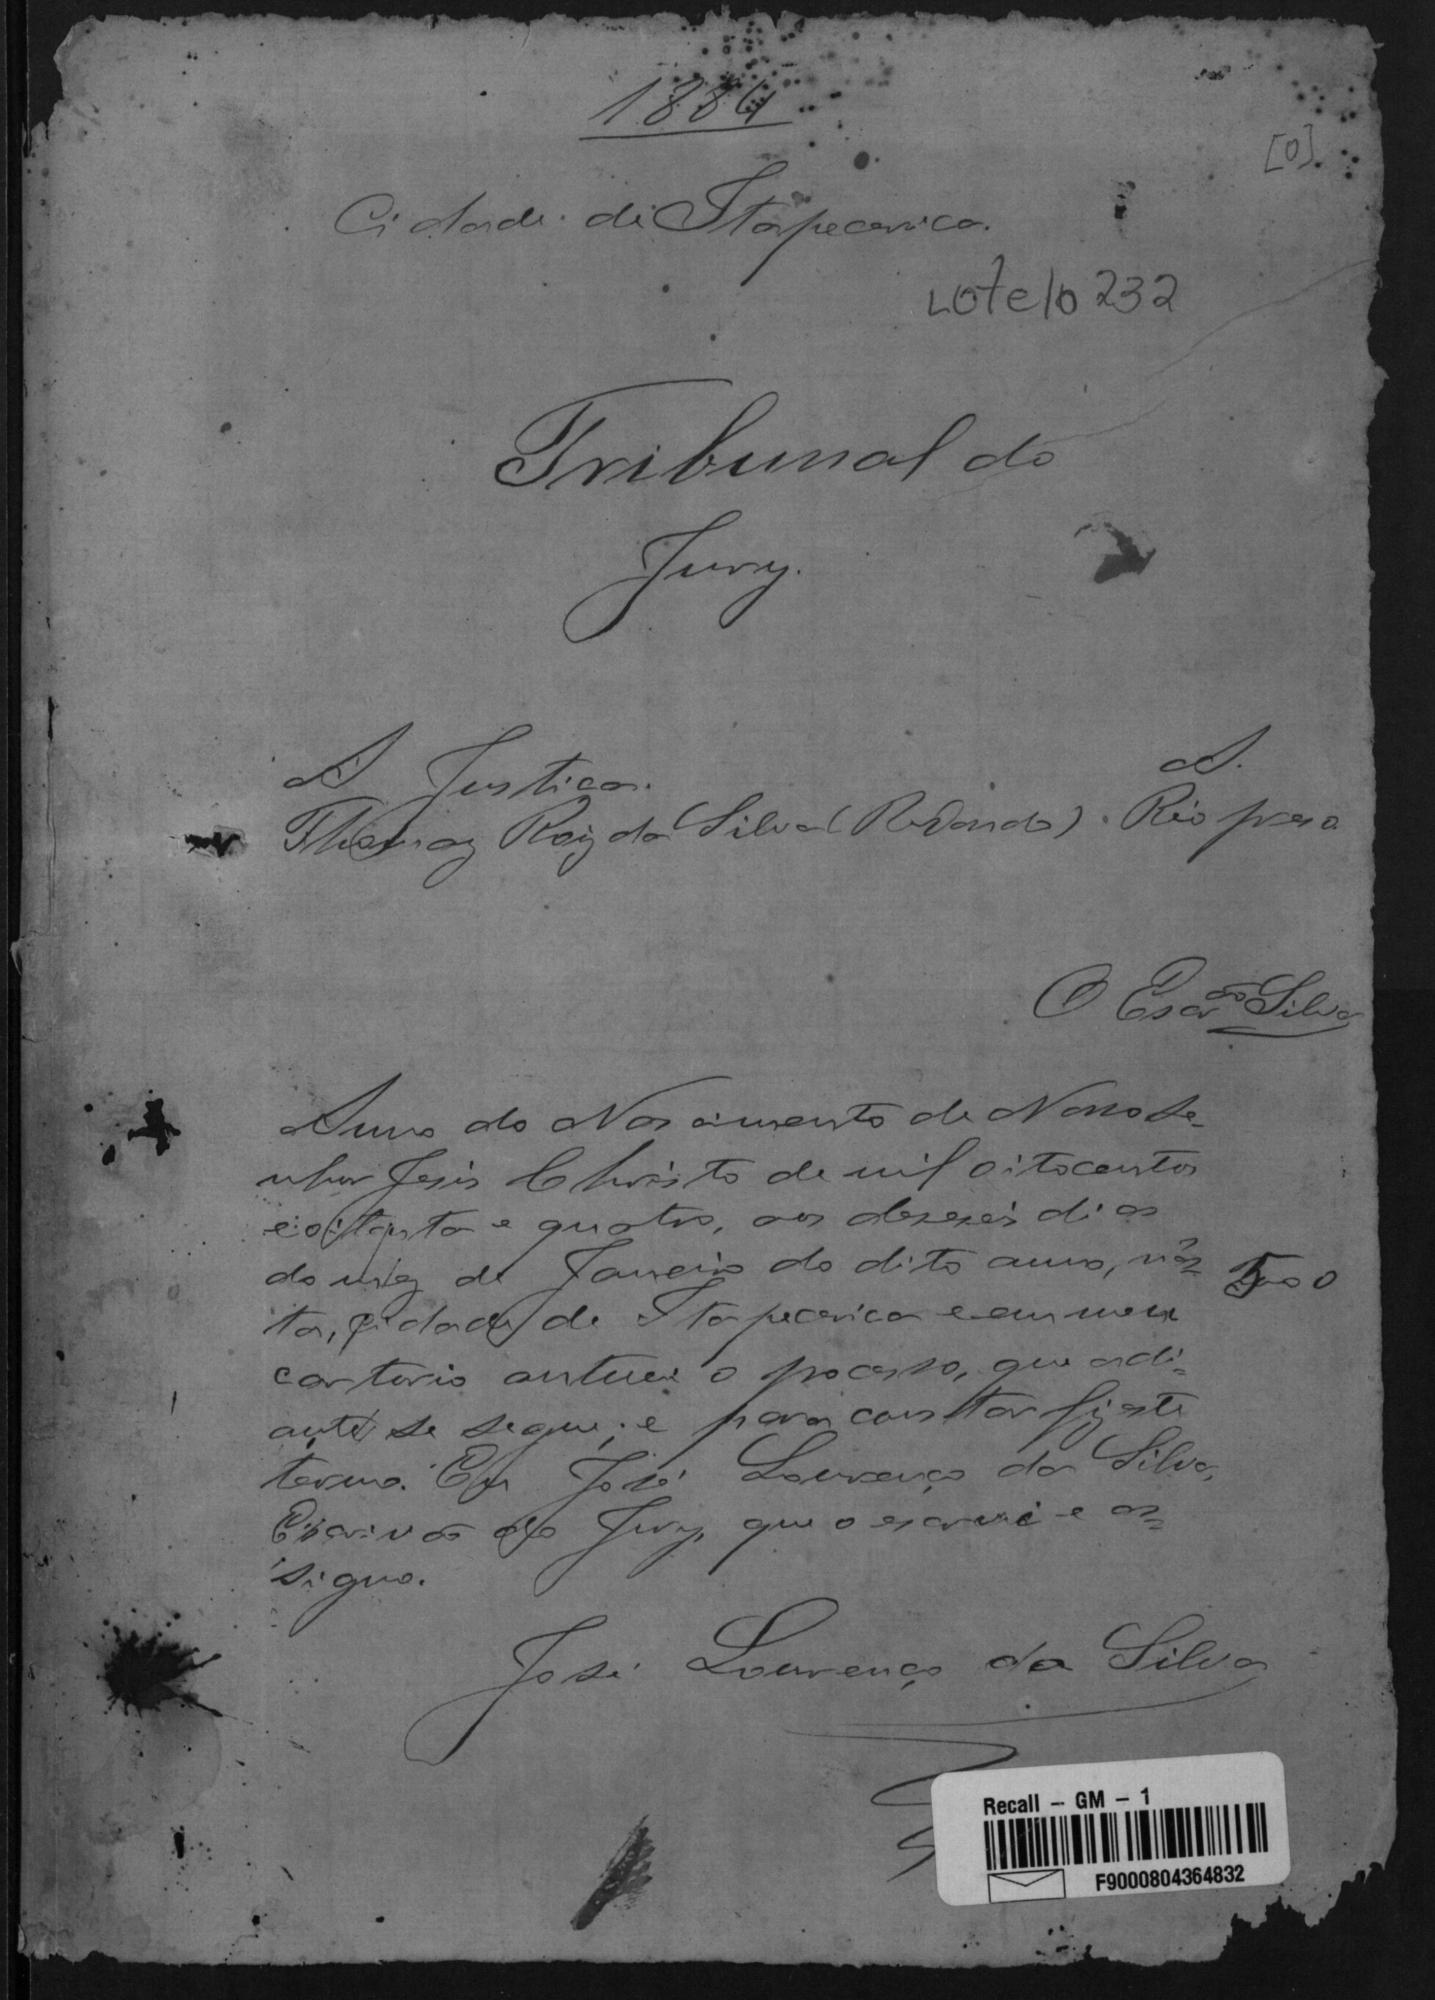 1884
[0]
Cidade de Itapecerica.
Lote 10 232
Tribunal do
Jury.
A Justiça. A.
Thomaz Roiz da Silva (Redondo). Réo preso
O Escr.ão Silva
Anno do Nascimento de Nosso Se-
nhor Jesus Christo de mil oitocentos
e oitenta e quatro, aos deseseis dias
do mez de Janeiro do dito anno, nes=
ta, cidade de Itapecerica e em meu
cartorio autuei o processo, que adi=
ante se segue; e para constar fiz este
termo. Eu José Lourenço da Silva,
Escrivão do Jury, que o escrevi e as=
signo.
José Lourenço da Silva
Recall - GM - 1
F9000804364832